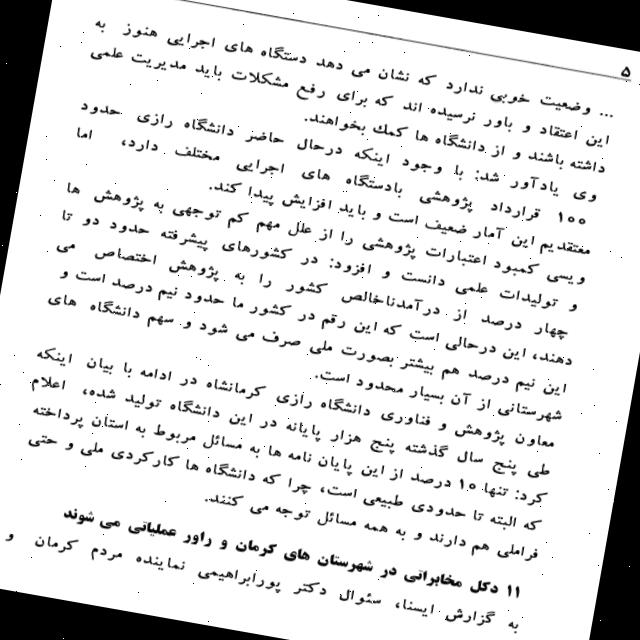 ۵
... وضعیت خوبی ندارد که نشان می دهد دستگاه های اجرایی هنوز به
این اعتقاد و باور نرسیده اند که برای رفع مشکلات باید مدیریت علمی
داشته باشند و از دانشگاه ها کمك بخواهند.
وی یادآور شد: با وجود اینکه درحال حاضر دانشگاه رازی حدود
۱۰۰ قرارداد پژوهشی بادستگاه های اجرایی مختلف دارد، اما
معتقدیم این آمار ضعیف است و باید افزایش پیدا کند.
ویسی کمبود اعتبارات پژوهشی را از علل مهم کم توجهی به پژوهش ها
و تولیدات علمی دانست و افزود: در کشورهای پیشرفته حدود دو تا
چهار درصد از درآمدناخالص کشور را به پژوهش اختصاص می
دهند، این درحالی است که این رقم در کشور ما حدود نیم درصد است و
این نیم درصد هم بیشتر بصورت ملی صرف می شود و سهم دانشگاه های
شهرستانی از آن بسیار محدود است.
معاون پژوهش و فناوری دانشگاه رازی کرمانشاه در ادامه با بیان اینکه
طی پنج سال گذشته پنج هزار پایانه در این دانشگاه تولید شده، اعلام
کرد: تنها ۱۰ درصد از این پایان نامه ها به مسائل مربوط به استان پرداخته
که البته تا حدودی طبیعی است، چرا که دانشگاه ها کارکردی ملی و حتی
فراملی هم دارند و به همه مسائل توجه می کنند.
۱۱ دکل مخابراتی در شهرستان های کرمان و راور عملیاتی می شوند
به گزارش ایسنا، سئوال دکتر پورابراهیمی نماینده مردم کرمان و